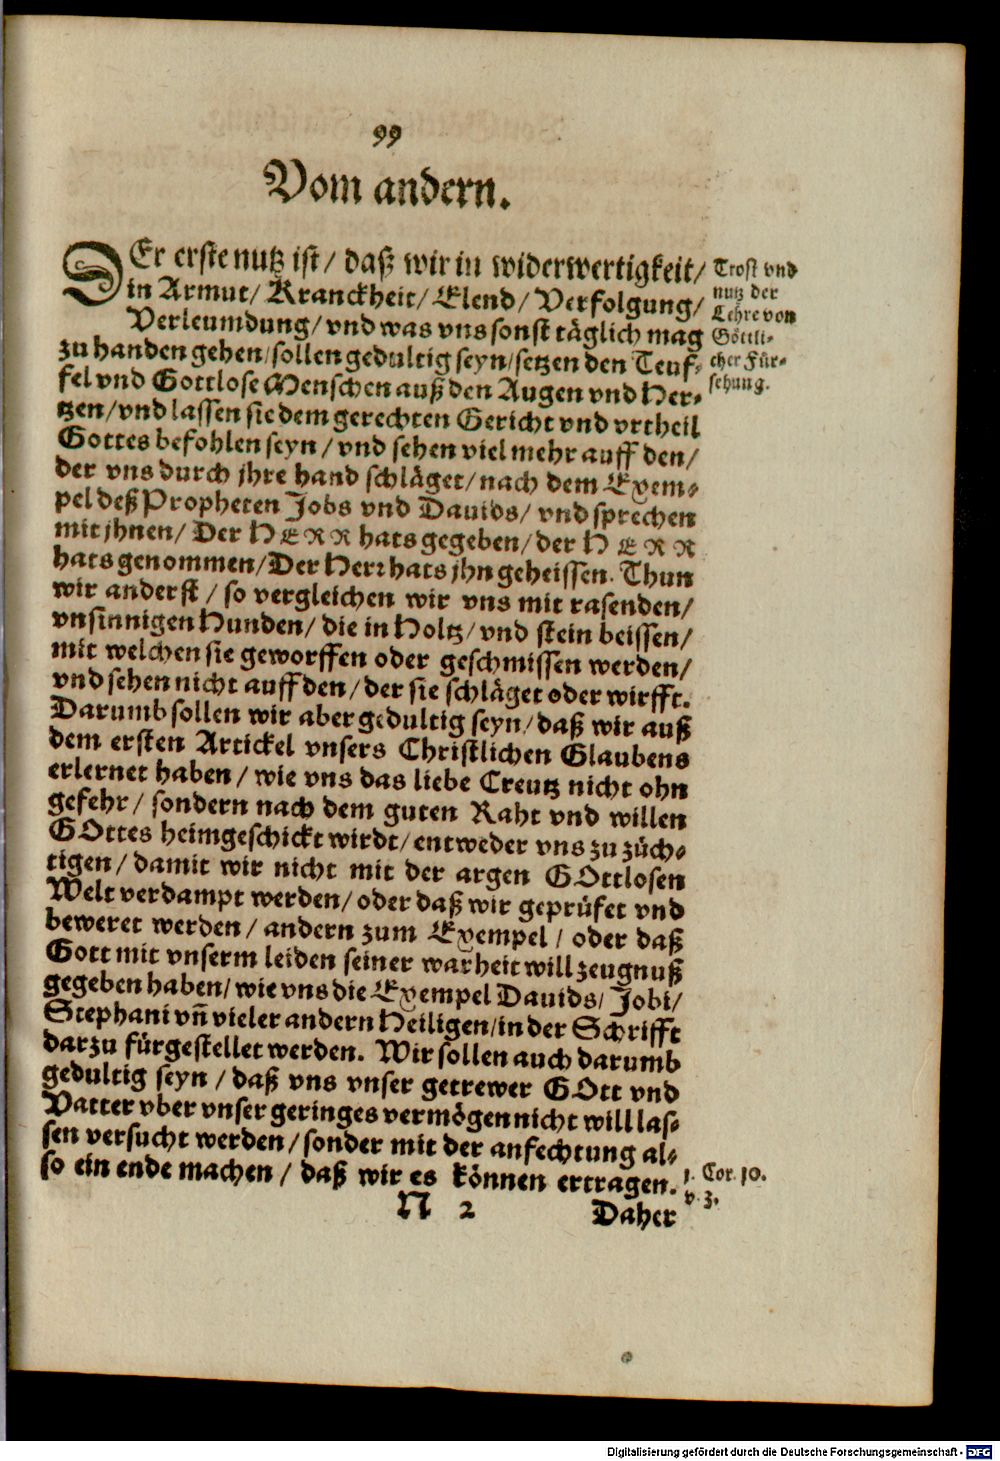 99
Vom andern.
DEr erste nutz ist/ daß wir in widerwertigkeit/
in Armut/ Kranckheit/ Elend/ Verfolgung/
Verleumdung/ vnd was vns sonst täglich mag
zu handen gehen/ sollen gedultig seyn/ setzen den Teuf-
fel vnd Gottlose Menschen auß den Augen vnd Her-
tzen/ vnd lassen sie dem gerechten Gericht vnd vrtheil
Gottes befohlen seyn/ vnd sehen viel mehr auff den/
der vns durch jhre hand schläget/ nach dem Exem-
pel deß Propheten Jobs vnd Dauids/ vnd sprechen
mit jhnen/ Der HERR hats gegeben/ der HERR
hats genommen/ Der Herr hats jhn geheissen. Thun
wir anderst/ so vergleichen wir vns mit rasenden/
vnsinnigen Hunden/ die in Holtz/ vnd stein beissen/
mit welchen sie geworffen oder geschmissen werden/
vnd sehen nicht auff den/ der sie schläget oder wirfft.
Darumb sollen wir aber gedultig seyn/ daß wir auß
dem ersten Artickel vnsers Christlichen Glaubens
erlernet haben/ wie vns das liebe Creutz nicht ohn
gefehr/ sondern nach dem guten Raht vnd willen
GOttes heimgeschickt wirdt/ entweder vns zu züch-
tigen/ damit wir nicht mit der argen GOttlosen
Welt verdampt werden/ oder daß wir geprüfet vnd
beweret werden/ andern zum Exempel/ oder daß
Gott mit vnserm leiden seiner warheit will zeugnuß
gegeben haben/ wie vns die Exempel Dauids/ Jobi/
Stephani vñ vieler andern Heiligen/ in der Schrifft
darzu fürgestellet werden. Wir sollen auch darumb
gedultig seyn/ daß vns vnser getrewer GOtt vnd
Vatter vber vnser geringes vermögen nicht will las-
sen versucht werden/ sonder mit der anfechtung al-
so ein ende machen/ daß wir es können ertragen.
N 2 Daher
Trost vnd
nutz der
Lehre von
Göttli-
cher Für-
sehung.
1. Cor. 10.
v. 3.
Digitalisierung gefördert durch die Deutsche Forschungsgemeinschaft - DFG